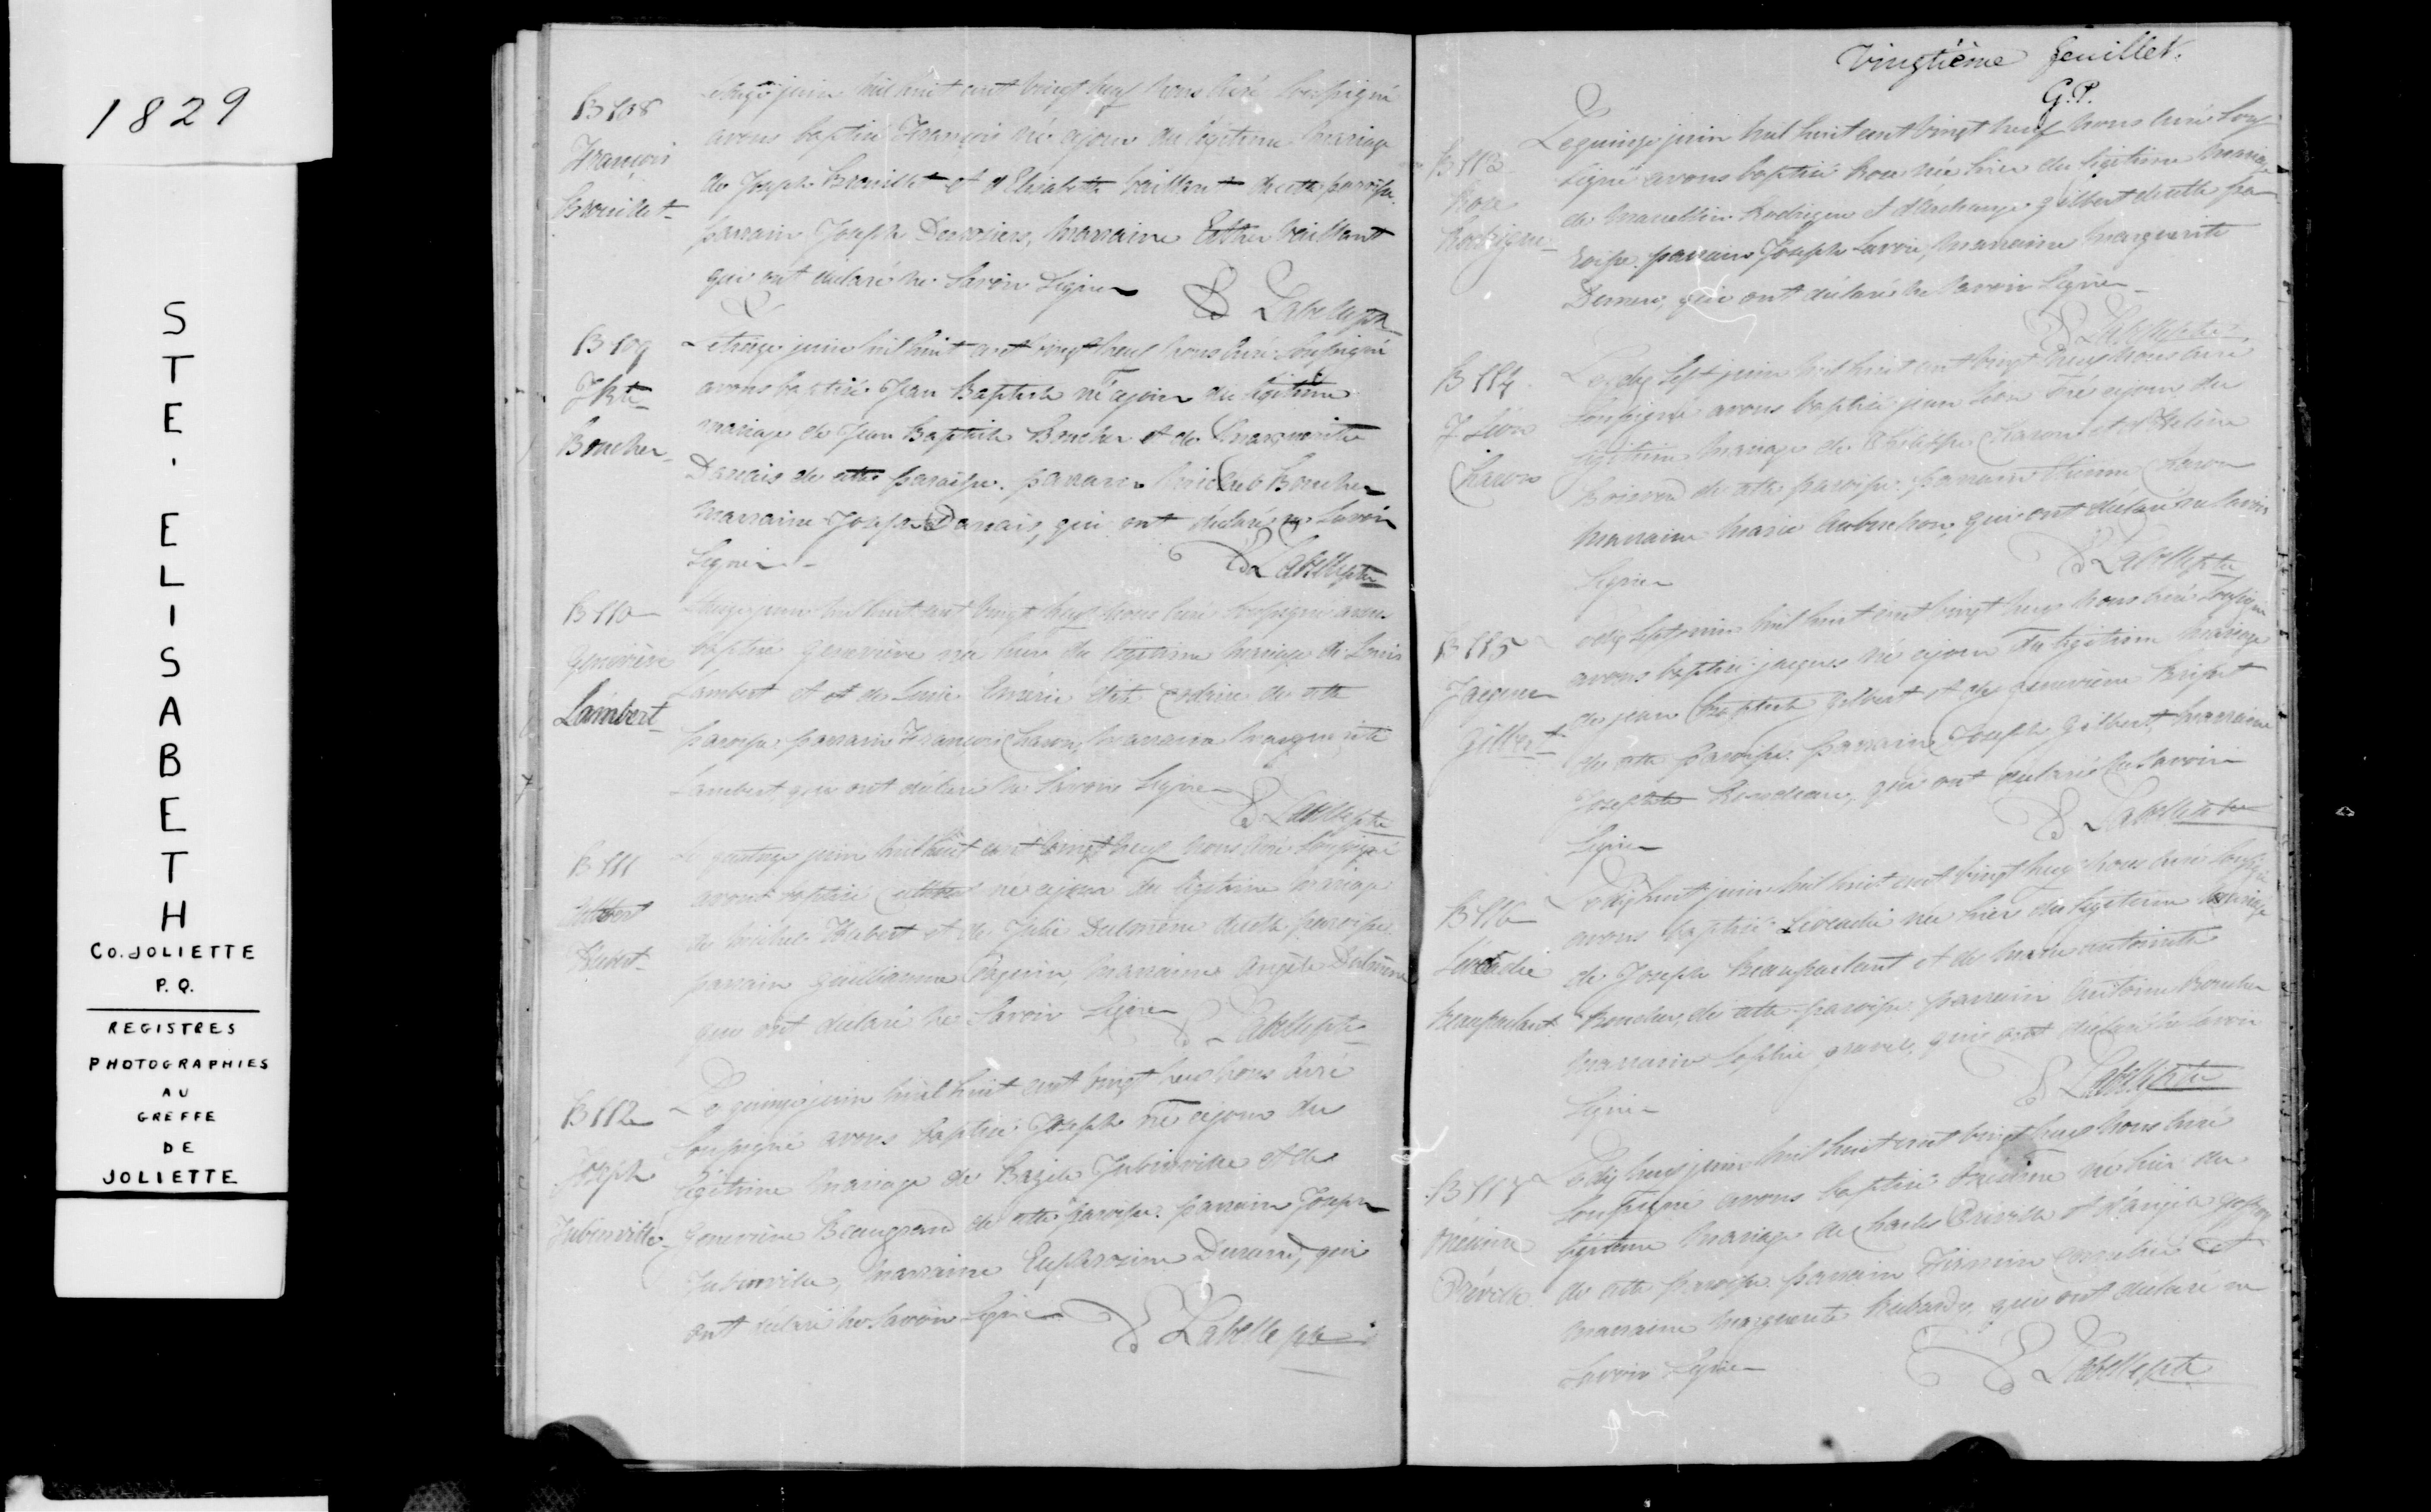 1829
STE. ELISABETH
CO. JOLIETTE
P. Q.
REGISTRES
PHOTOGRAPHIES
AU
GREFFE
DE
JOLIETTE
B 108
François
Brouillet
juin mil huit cent vingt neuf nous curé soussigné
avons baptisé François né ce jour du légitime mariage
de Joseph Brouillet et d'Elisabeth Vaillant de cette paroisse.
parrain Joseph Desrosiers, marraine Esther Vaillant
qui ont déclaré ne savoir signer
Labelle ptre
B 109
J Bte
Boucher
Le treize juin mil huit cent vingt neuf nous curé soussigné
avons baptisé Jean Baptiste né ce jour du légitime
mariage de Jean Baptiste Boucher et de Marguerite
Danais de cette paroisse. parrain Boucher
marraine Josephte Danais, qui ont déclaré ne savoir
signer
Labelle ptre
B 110
Geneviève
Lambert
juin mil huit cent vingt neuf nous curé soussigné avons
baptisé Geneviève née hier du légitime mariage de Louis
Lambert et et de Marie de cette
paroisse, parrain François Charon, marraine Marguerite
Lambert, qui ont déclaré ne savoir signer
Labelle ptre
B 111
Hébert
Le quatorze juin mil huit cent vingt neuf nous curé soussigné
avons baptisé né ce jour du légitime mariage
de Michel Hébert et de Julie Dulmène de cette paroisse
parrain Guillaume marraine Angèle Dulmène
qui ont déclaré ne savoir signer
Labelle ptre
B 112
Joseph
Jubinville
Le quinze juin mil huit cent vingt neuf nous curé
soussigné avons baptisé Joseph né ce jour du
légitime mariage de Bazile Jubinville et de
Geneviève Beaugrand de cette paroisse. parrain Joseph
Jubinville, marraine Euphrosine Durand, qui
ont déclaré ne savoir signer
Labelle ptre
Vingtième feuillet.
G.P.
B 113
Rose
Rodrigue
Le quinze juin mil huit cent vingt neuf nous curé sous
signé avons baptisé Rose née hier du légitime mariage
de Marcellin Rodrigue et d'Archange Gilbert de cette pa
roisse. parrain Joseph Savoie, marraine Marguerite
qui ont déclaré ne savoir signer
Labelle ptre
B 114
J Léon
Charon
Le dix sept juin mil huit cent vingt neuf nous curé
soussigné avons baptisé jean Léon né ce jour du
légitime mariage de Charon et d'Hélène
de cette paroisse. parrain Etienne Charon
marraine Marie Aubuchon, qui ont déclaré ne savoir
signer
Labelle ptre
B 115
Jacques
Gilbert
dix sept juin mil huit cent vingt neuf nous curé soussigné
avons baptisé jacques né ce jour du légitime mariage
de jean Baptiste Gilbert et de Geneviève
de cette paroisse. parrain Joseph Gilbert, marraine
Josephte qui ont déclaré ne savoir
signer
Labelle ptre
B 116
Léocadie
Beauparlant
Le dix huit juin mil huit cent vingt neuf nous curé soussigné
avons baptisé Léocadie née hier du légitime mariage
de Joseph Beauparlant et de Marie Antoinette
Boucher, de cette paroisse. parrain Antoine Boucher
marraine Sophie qui ont déclaré ne savoir
signer
Labelle ptre
B 117
Onésime
Préville
Le dix neuf juin mil huit cent vingt neuf nous curé
soussigné avons baptisé Onésime né hier du
légitime mariage de Charles Préville et d'Angèle
de cette paroisse. parrain Firmin et
marraine Marguerite qui ont déclaré ne
savoir signer
Labelle ptre